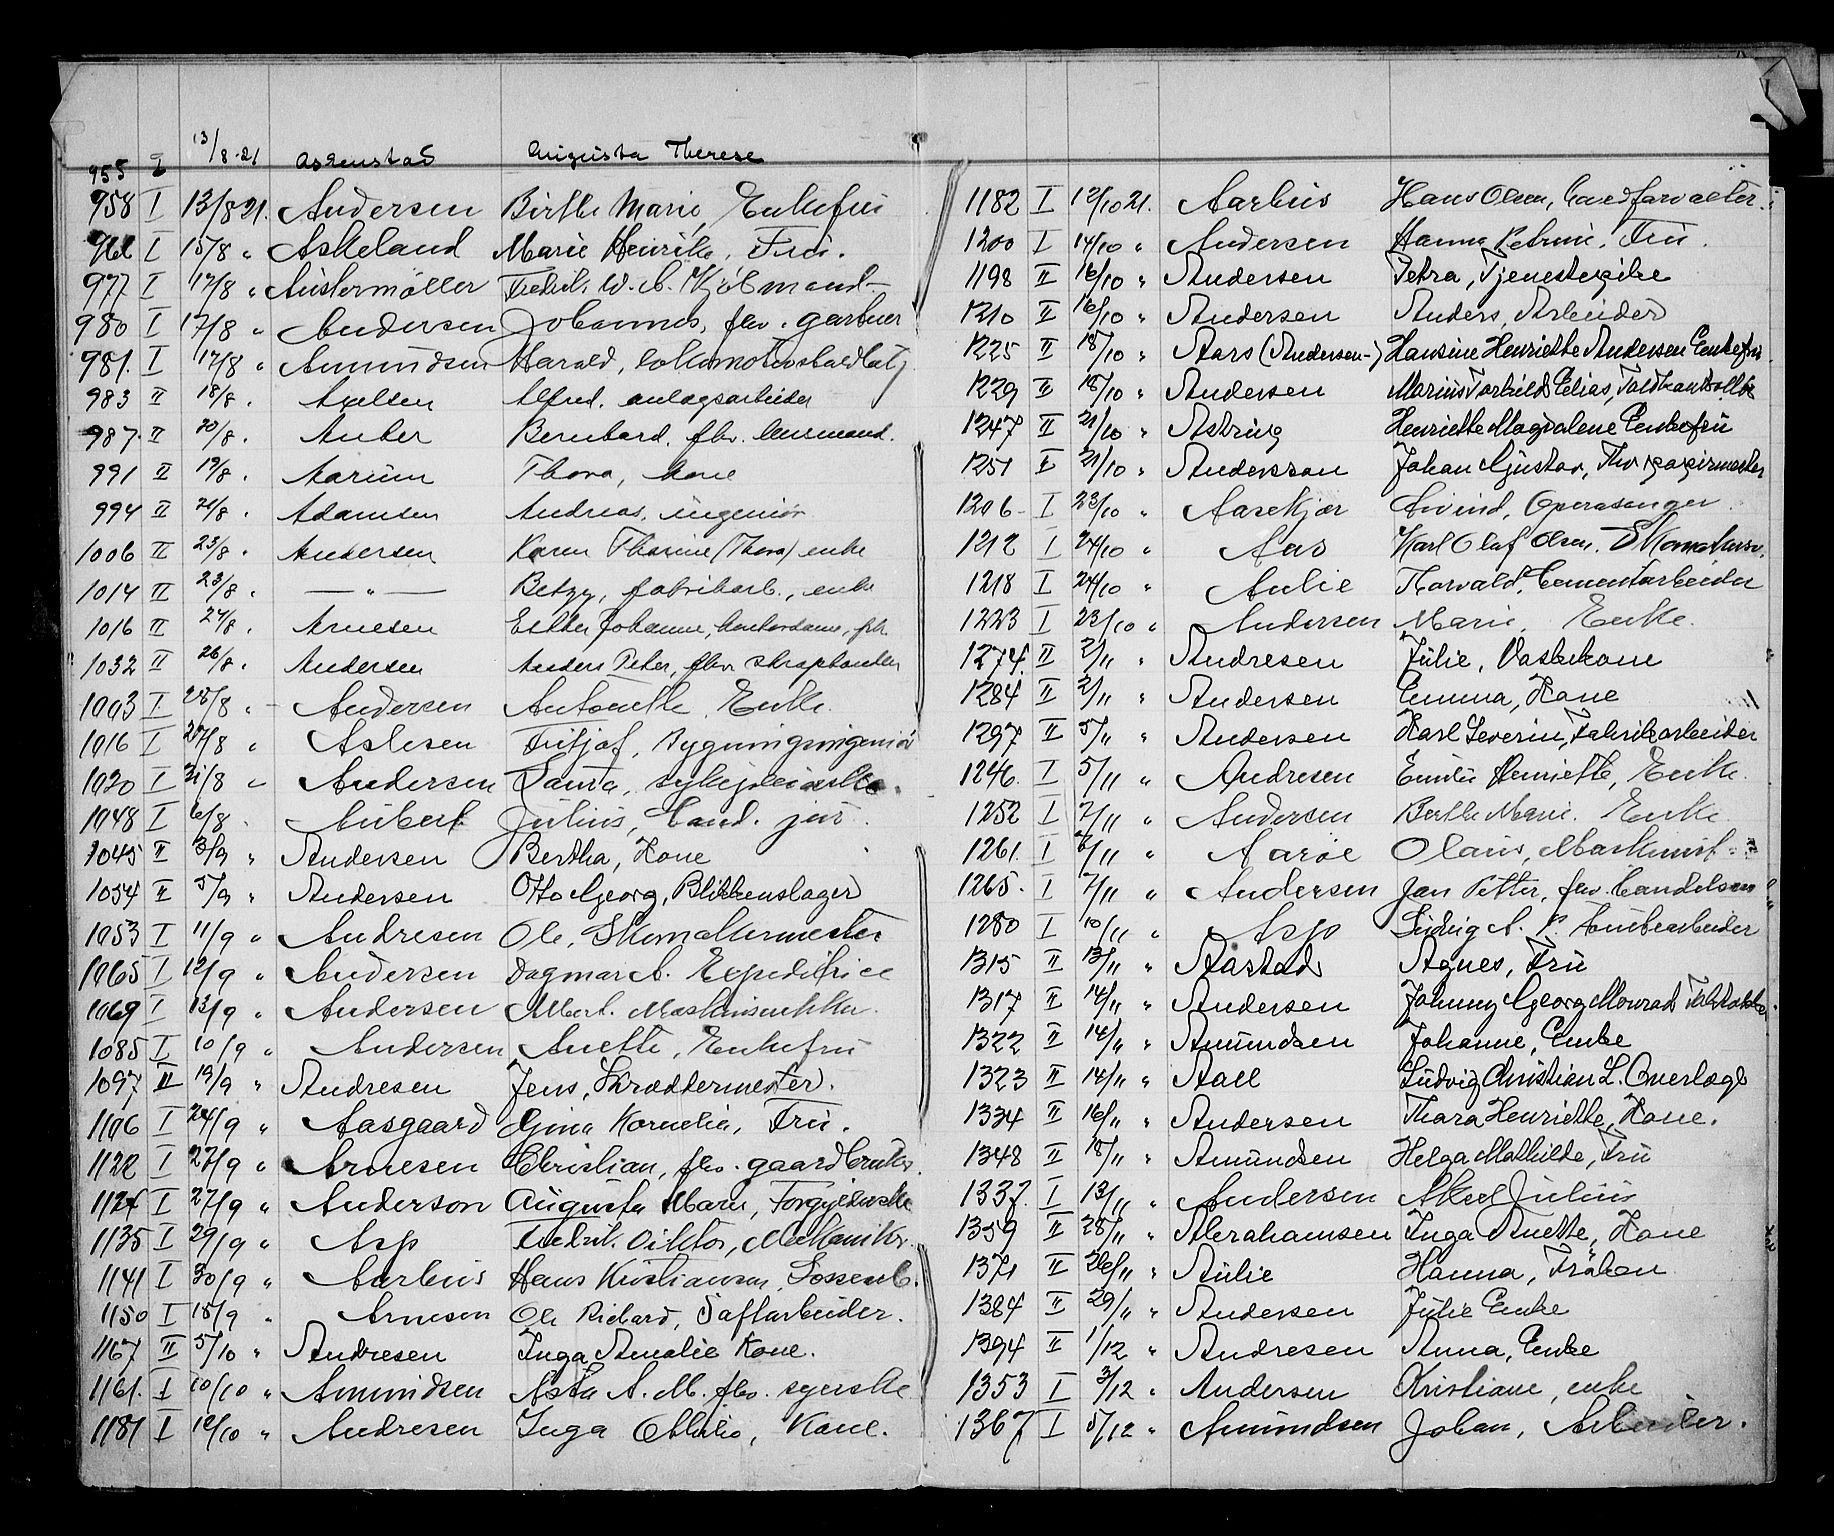 955 I 13/8-21 Askenstad Augusta Therese
958 I 13/8 21. Andersen Birthe Marie, Enkefru
966 I 15/8 " Askeland Marie Henrikke, Fru.
977 I 17/8 " Austermøller Fredrik W. A. Kjøbmand
980 I 17/8 " Andersen Johannes, fhv. gartner
981. I 17/8 " Amundsen Harald, Lokomotivstaldbetj
983 II 18/8 . Axelsen Alfred, anlægsarbeider
987. II 20/8 . Anker Bernhard, fhv.
991 II 19/8 . Aarum Thora, kone
994 II 21/8 . Adamsen Andreas, ingeniør
1006 II 23/8 . Andersen Karen Thorine (Thora) enke
1014 II 23/8 . — " — Betzy, fabrikarb., enke
1016 II 24/8 . Arnesen Esther Johanne, kontordame, frk.
1032 II 26/8 . Andersen Anders Peter, fhv. skraphandler
1003 I 25/8 - Andersen Antonette, Enke.
1016 I 27/8 " Aslesen Fritjof, Bygningsingeniør
1020 I 31/8 " Andersen Laura, sykepleierske.
1048 I 6/8 . Aubert Julius, Cand. jur.
1045 II 3/9 " Andersen Bertha, Kone
1054 II 5/9 " Andersen Otto Georg, Blikkenslager
1053 I 11/9 " Andresen Ole, Skomakermester
1065 I 12/9 " Andersen Dagmar A. Expeditrice
1069 I 13/9 " Andersen Albert. Maskinsnekker.
1085 I 10/9 " Andersen Anette, Enkefru
1097 II 19/9 " Andresen Jens, Skræddermester.
1106 I 24/9 " Aasgaard Gina Kornelia, Fru.
1122 I 27/9 " Arnesen Christian, fhv. gaardbruker.
1124 I 27/9 " Anderson Augusta Marie, Forgylderske
1135 I 29/9 " Asp Fredrik Viktor, Mekaniker.
1141 I 30/9 " Aarhus Hans Kristiansen, Lossearb.
1150 I 15/9 " Arnesen Ole Rickard, Saftarbeider.
1167 II 5/10 " Andresen Inga Amalie Kone.
1161. I 10/10 " Amundsen Asta A. M. fhv. syerske
1181 I 12/10 " Andresen Inga Othilie, Kone.
1182 I 12/10 21. Aarhus Hans Olsen, Gaardforvalter.
1200 I 14/10 " Andersen Hanna Petrine, Fru.
1198 II 16/10 " Andersen Petra, Tjenestepike
1210 II 16/10 " Andersen Anders, Arbeider
1225 II 18/10 " Aars (Andersen-) Hansine Henriette Andersen Enkefru
1229 II 18/10 " Andersen Marius Torkild Elias,
1247 II 21/10 " Astrup Henriette Magdalene Enkefru
1251 II 21/10 " Andersson Johan Gustav,
1206 I 23/10 " Aasekjær Eivind, Operasanger
1212 I 24/10 " Aas Karl Olaf Olsen. Skomakersv.
1218 I 24/10 " Aulie Thorvald, Cementarbeider
1223 I 23/10 " Andersen Marie, Enke.
1274. II 2/11 " Andresen Julie, Vaskekone
1284 II 2/11 " Andersen Emma, Kone
1297 II 5/11 " Andersen Karl Severin, Fabrikarbeider
1246. I 5/11 " Andresen Emilie Henriette, Enke.
1252 I 7/11 " Andersen Berthe Marie. Enke
1261. I 7/11 " Aarøe Olaus, Maskinist
1265. I 7/11 " Andersen Jan Petter, fhv. Handelsmann
1280 I 10/11 " Asp Ludvig A. P. Tomtearbeider
1315 II 13/11 " Aastad Agnes, Fru
1317 II 14/11 " Andersen Johnny Georg Monrad
1322 II 14/11 " Amundsen Johanne, Enke
1323 II 14/11 " Aall Ludvig Christian L. Overlæge
1334 II 16/11 " Andersen Thora Henriette, Kone.
1348 II 18/11 " Amundsen Helga Mathilde, Fru
1337. I 13/11 " Andersen Aksel Julius
1359 II 25/11 " Abrahamsen Inga Anette, Kone
1371 II 26/11 " Aulie Hanna, Frøken
1384 II 29/11 " Andersen Julie Enke
1394 II 1/12 " Andresen Anna, Enke
1353 I 3/12 " Andersen Kristiane, enke
1367 I 5/12 " Amundsen Johan, Arbeider.